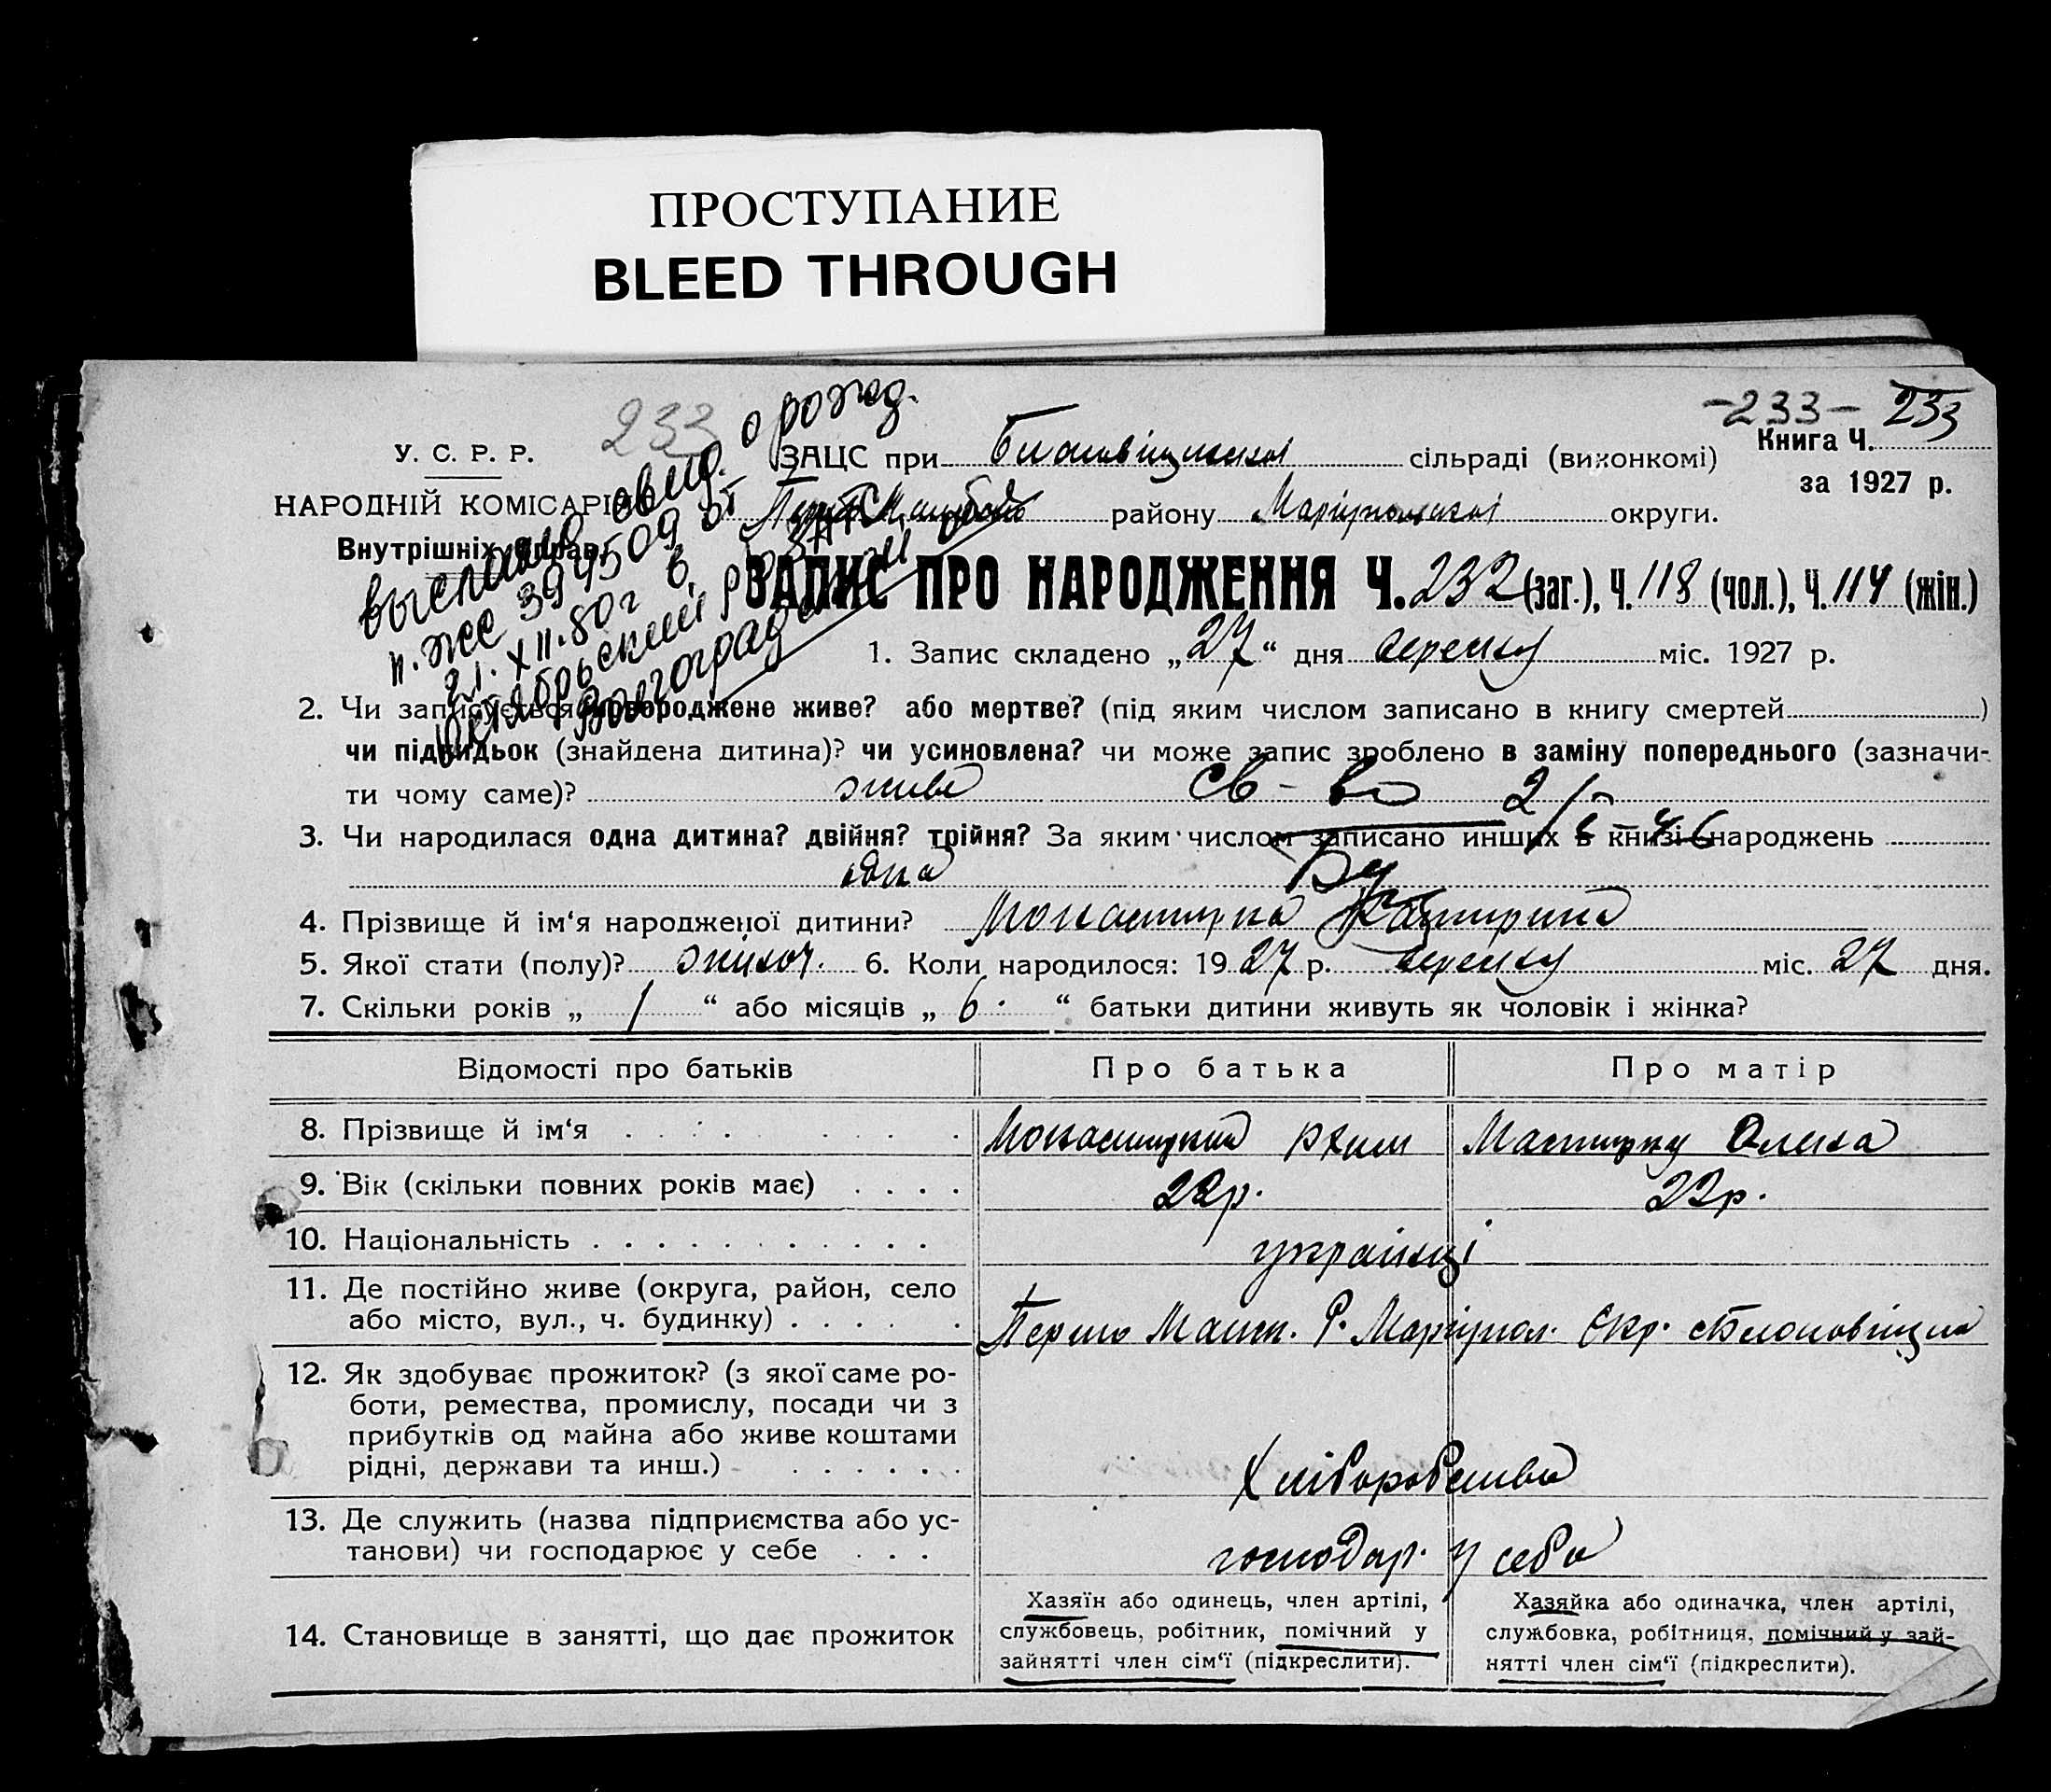 ПРОСТУПАНИЕ
BLEED THROUGH
233
-233- 233
Книга Ч.
за 1927 р.
У. С. Р. Р.
НАРОДНІЙ КОМІСАРІЯТ
Внутрішніх Справ
выслано свид. о рожд.
394509 от
21. XII. 80 г в
Октябрьский р/о ЗАГС
Волгоградской обл
ЗАЦС при сільраді (виконкомі)
району Маріупольської округи.
ЗАПИС ПРО НАРОДЖЕННЯ Ч. 232 (заг.), Ч. 118 (чол.), Ч. 114 (жін.)
1. Запис складено „27“ дня серпня міс. 1927 р.
2. Чи записується новороджене живе? або мертве? (під яким числом записано в книгу смертей )
чи підкидьок (знайдена дитина)? чи усиновлена? чи може запис зроблено в заміну попереднього (зазначи-
ти чому саме)? живе Св-во
3. Чи народилася одна дитина? двійня? трійня? За яким числом записано инших в книзі народжень
одна
4. Прізвище й ім‘я народженої дитини?
5. Якої стати (полу)? жіноч. 6. Коли народилося: 1927 р. серпня міс. 27 дня.
7. Скільки років „ 1 “ або місяців „ 6 “ батьки дитини живуть як чоловік і жінка?
Відомості про батьків Про батька Про матір
8. Прізвище й ім‘я Олена
9. Вік (скільки повних років має) 22р. 22р.
10. Національність українці
11. Де постійно живе (округа, район, село
або місто, вул., ч. будинку) Першо Р. Маріупол. Окр.
12. Як здобуває прожиток? (з якої саме ро-
боти, ремества, промислу, посади чи з
прибутків од майна або живе коштами
рідні, держави та инш.) Хліборобство
13. Де служить (назва підприємства або ус-
танови) чи господарює у себе господар. у себе
14. Становище в занятті, що дає прожиток
Хазяїн або одинець, член артілі,
службовець, робітник, помічний у
зайнятті член сім‘ї (підкреслити).
Хазяйка або одиначка, член артілі,
службовка, робітниця, помічний у зай-
нятті член сім‘ї (підкреслити).